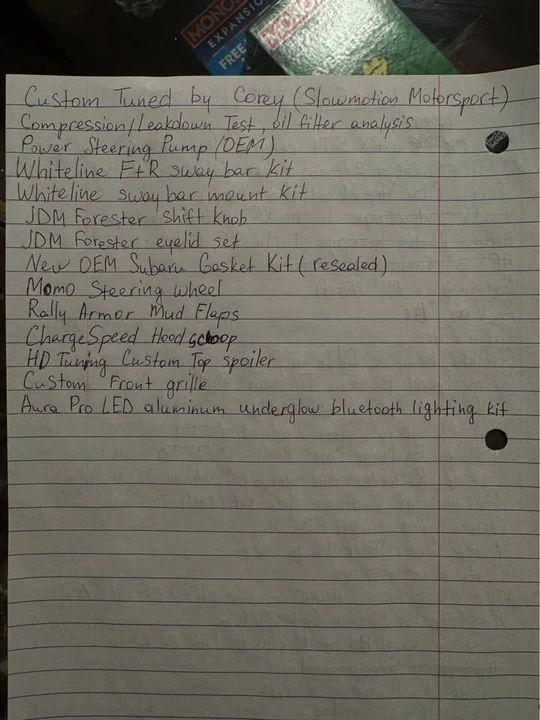 MONO
EXPANSIO
FREE
MONO
Custom Tuned by Corey (Slowmotion Motorsport)
Compression/Leakdown Test, oil filter analysis
Power Steering Pump (OEM)
Whiteline F+R sway bar kit
Whiteline sway bar mount kit
JDM Forester shift knob
JDM Forester eyelid set
New OEM Subaru Gasket Kit (resealed)
Momo Steering wheel
Rally Armor Mud Flaps
ChargeSpeed Hood scoop
HD Tuning Custom Top spoiler
Custom Front grille
Aura Pro LED aluminum underglow bluetooth lighting kit